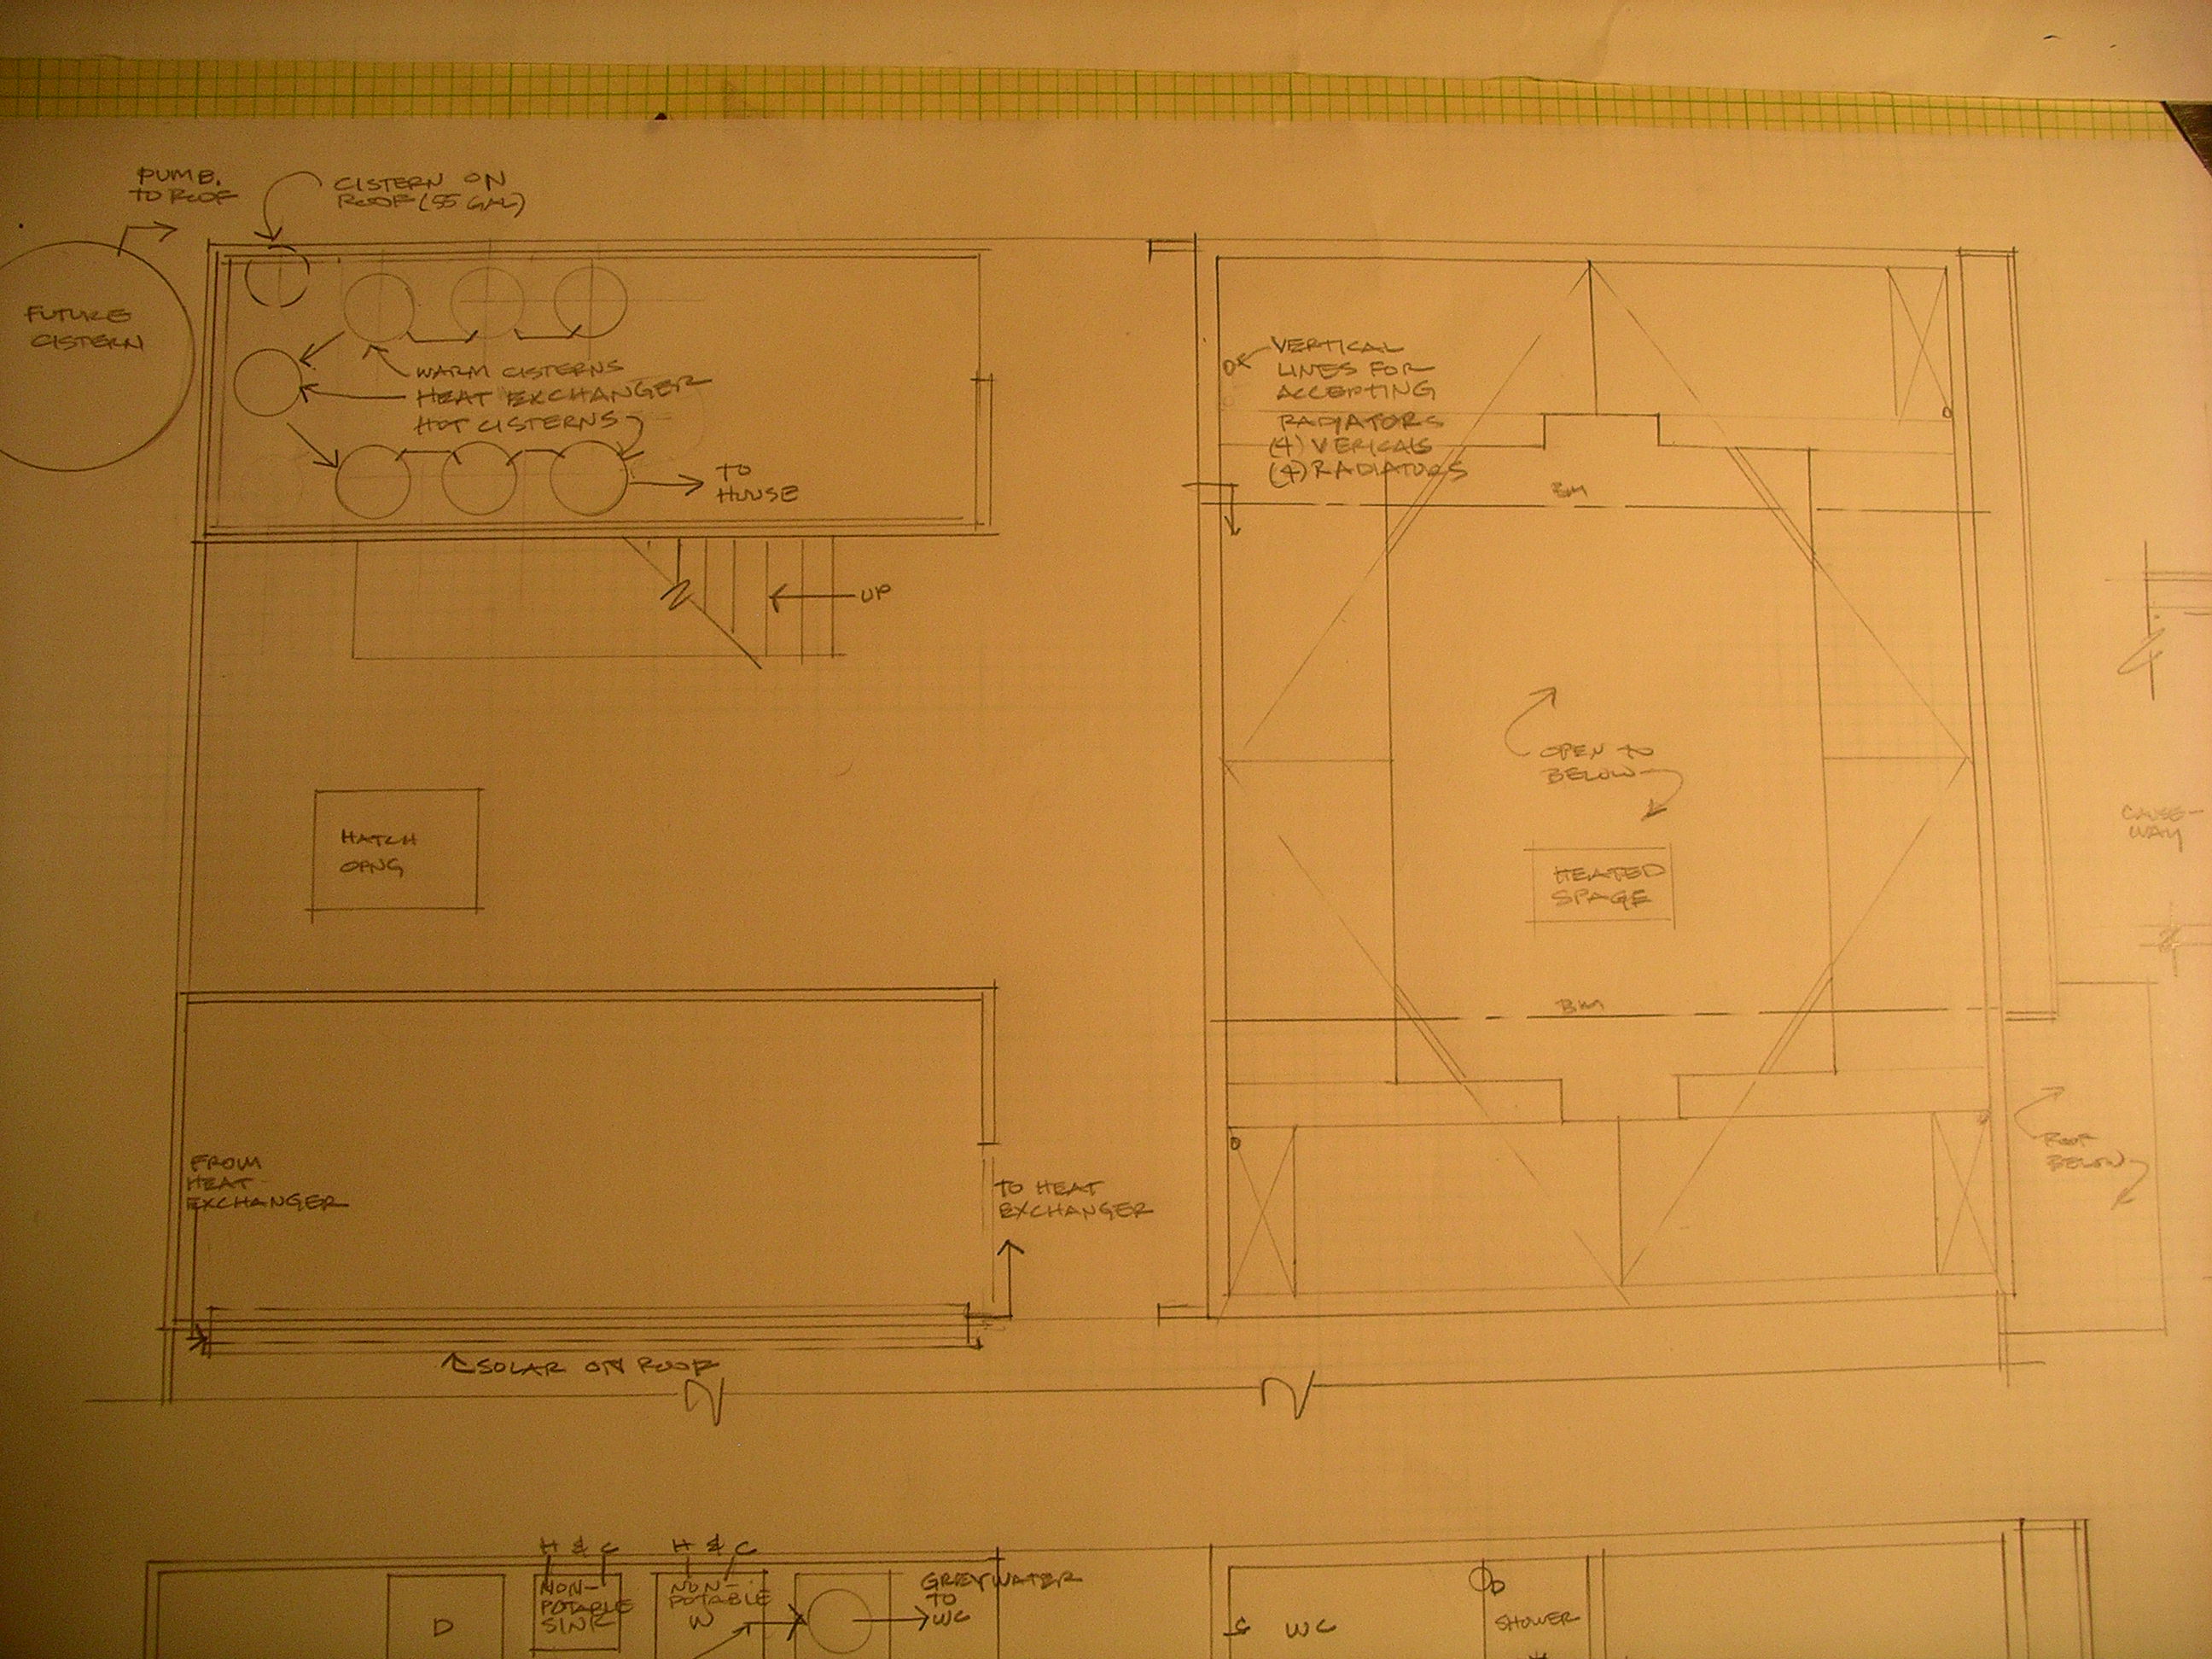 PUMB.
TO ROOF
CISTERN ON
ROOF (55 GAL)
FUTURE
CISTERN
WARM CISTERNS
HEAT EXCHANGER
HOT CISTERNS
TO
HOUSE
UP
HATCH
OPNG
FROM
HEAT
EXCHANGER
TO HEAT
EXCHANGER
SOLAR ON ROOF
VERTICAL
LINES FOR
ACCEPTING
RADIATORS
(4) VERICALS
(4) RADIATORS
BM
OPEN TO
BELOW
HEATED
SPAGE
BM
CAUSE-
WAY
ROOF
BELOW
H & C
H & C
D
NON-
POTABLE
SINK
NON-
POTABLE
W
GREYWATER
TO
WC
WC
D
SHOWER